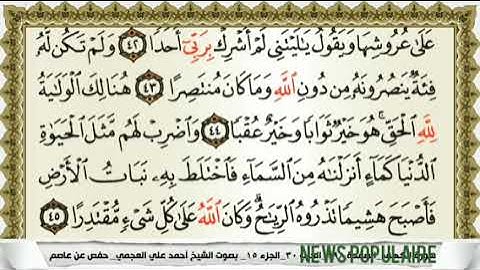 عَلَىٰ عُرُوشِهَا وَيَقُولُ يَٰلَيْتَنِي لَمْ أُشْرِكْ بِرَبِّيٓ أَحَدًا ٤٢ وَلَمْ تَكُن لَّهُۥ
فِئَةٌ يَنصُرُونَهُۥ مِن دُونِ ٱللَّهِ وَمَا كَانَ مُنتَصِرًا ٤٣ هُنَالِكَ ٱلْوَلَٰيَةُ
لِلَّهِ ٱلْحَقِّ ۚ هُوَ خَيْرٌ ثَوَابًا وَخَيْرٌ عُقْبًا ٤٤ وَٱضْرِبْ لَهُم مَّثَلَ ٱلْحَيَوٰةِ
ٱلدُّنْيَا كَمَآءٍ أَنزَلْنَٰهُ مِنَ ٱلسَّمَآءِ فَٱخْتَلَطَ بِهِۦ نَبَاتُ ٱلْأَرْضِ
فَأَصْبَحَ هَشِيمًا تَذْرُوهُ ٱلرِّيَٰحُ ۗ وَكَانَ ٱللَّهُ عَلَىٰ كُلِّ شَيْءٍ مُّقْتَدِرًا ٤٥
٣٠_ الجزء ١٥_ بصوت الشيخ أحمد علي العجمي_ حفص عن عاصم
NEWS POPULAIRE